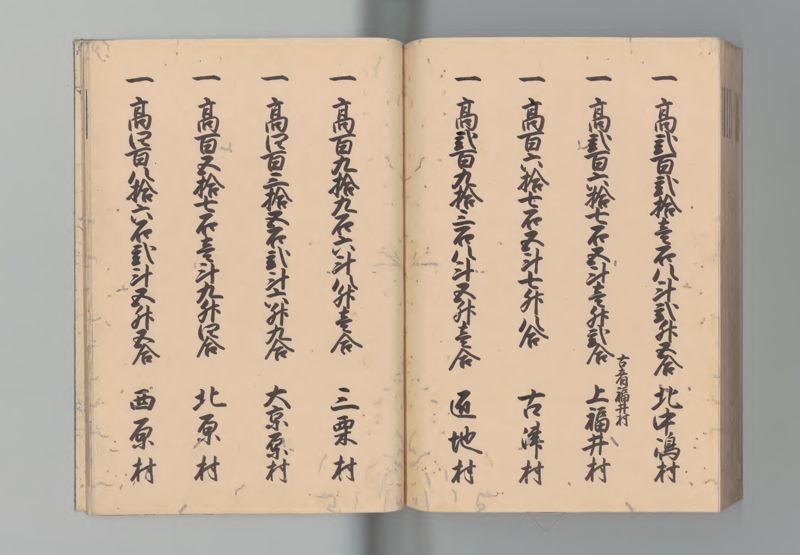 一 高弐百弐拾壱石八斗弐升五合 北中嶋村
古者福井村
一 高弐百六拾七石五斗壱升弐合 上福井村
一 高百六拾七石五斗七升八合 古津村
一 高弐百九拾三石八斗五升壱合 迫地村
一 高百九拾九石六斗八升壱合 三栗村
一 高四百三拾五石弐斗六升九合 大京原村
一 高百五拾七石壱斗九升四合 北原村
一 高四百八拾六石弐斗五升五合 西原村